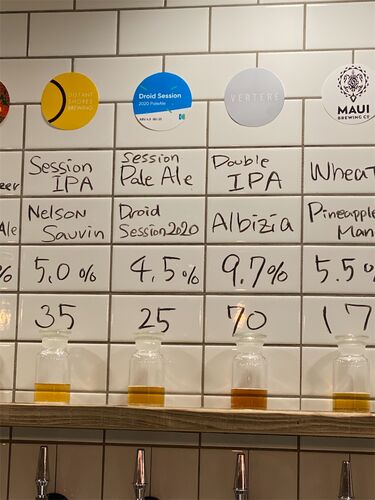 DISTANT
SHORES
BREWING
Droid Session
2020 PaleAle
VERTERE
MAUI
BREWING CO
Session
IPA
Session
Pale Ale
Double
IPA
Nelson
Sauvin
Droid
Session2020
Albizia
Pineapple
5.0%
4.5%
9.7%
5.5%
35
25
70
17